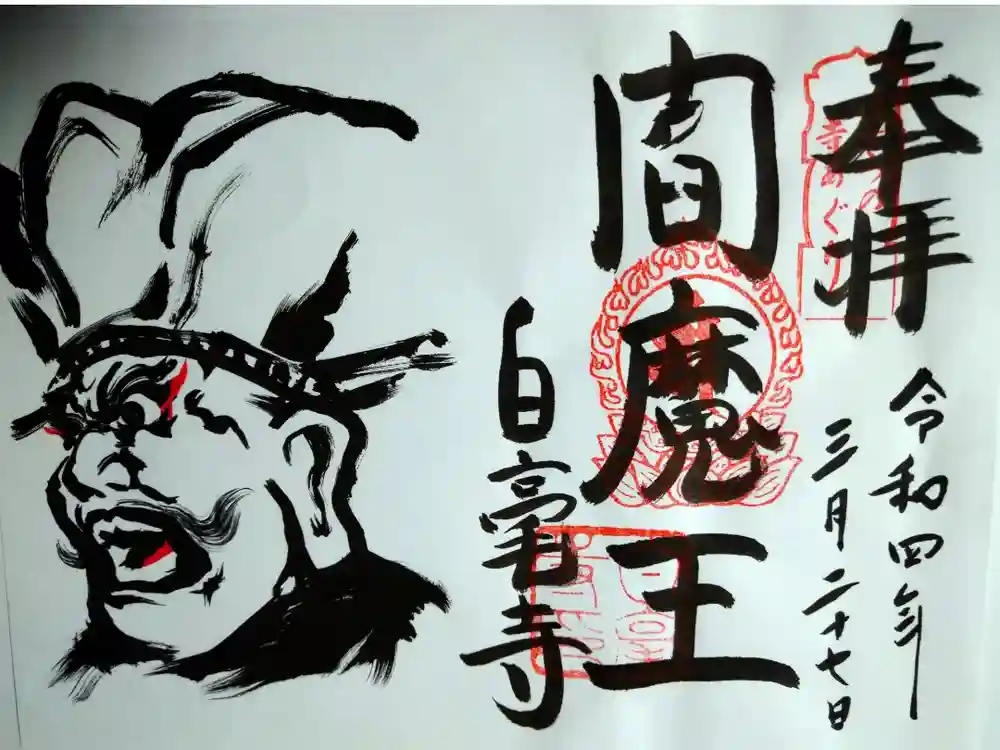 奉拝
寺めぐり
令和四年
三月二十七日
閻魔王
白毫寺